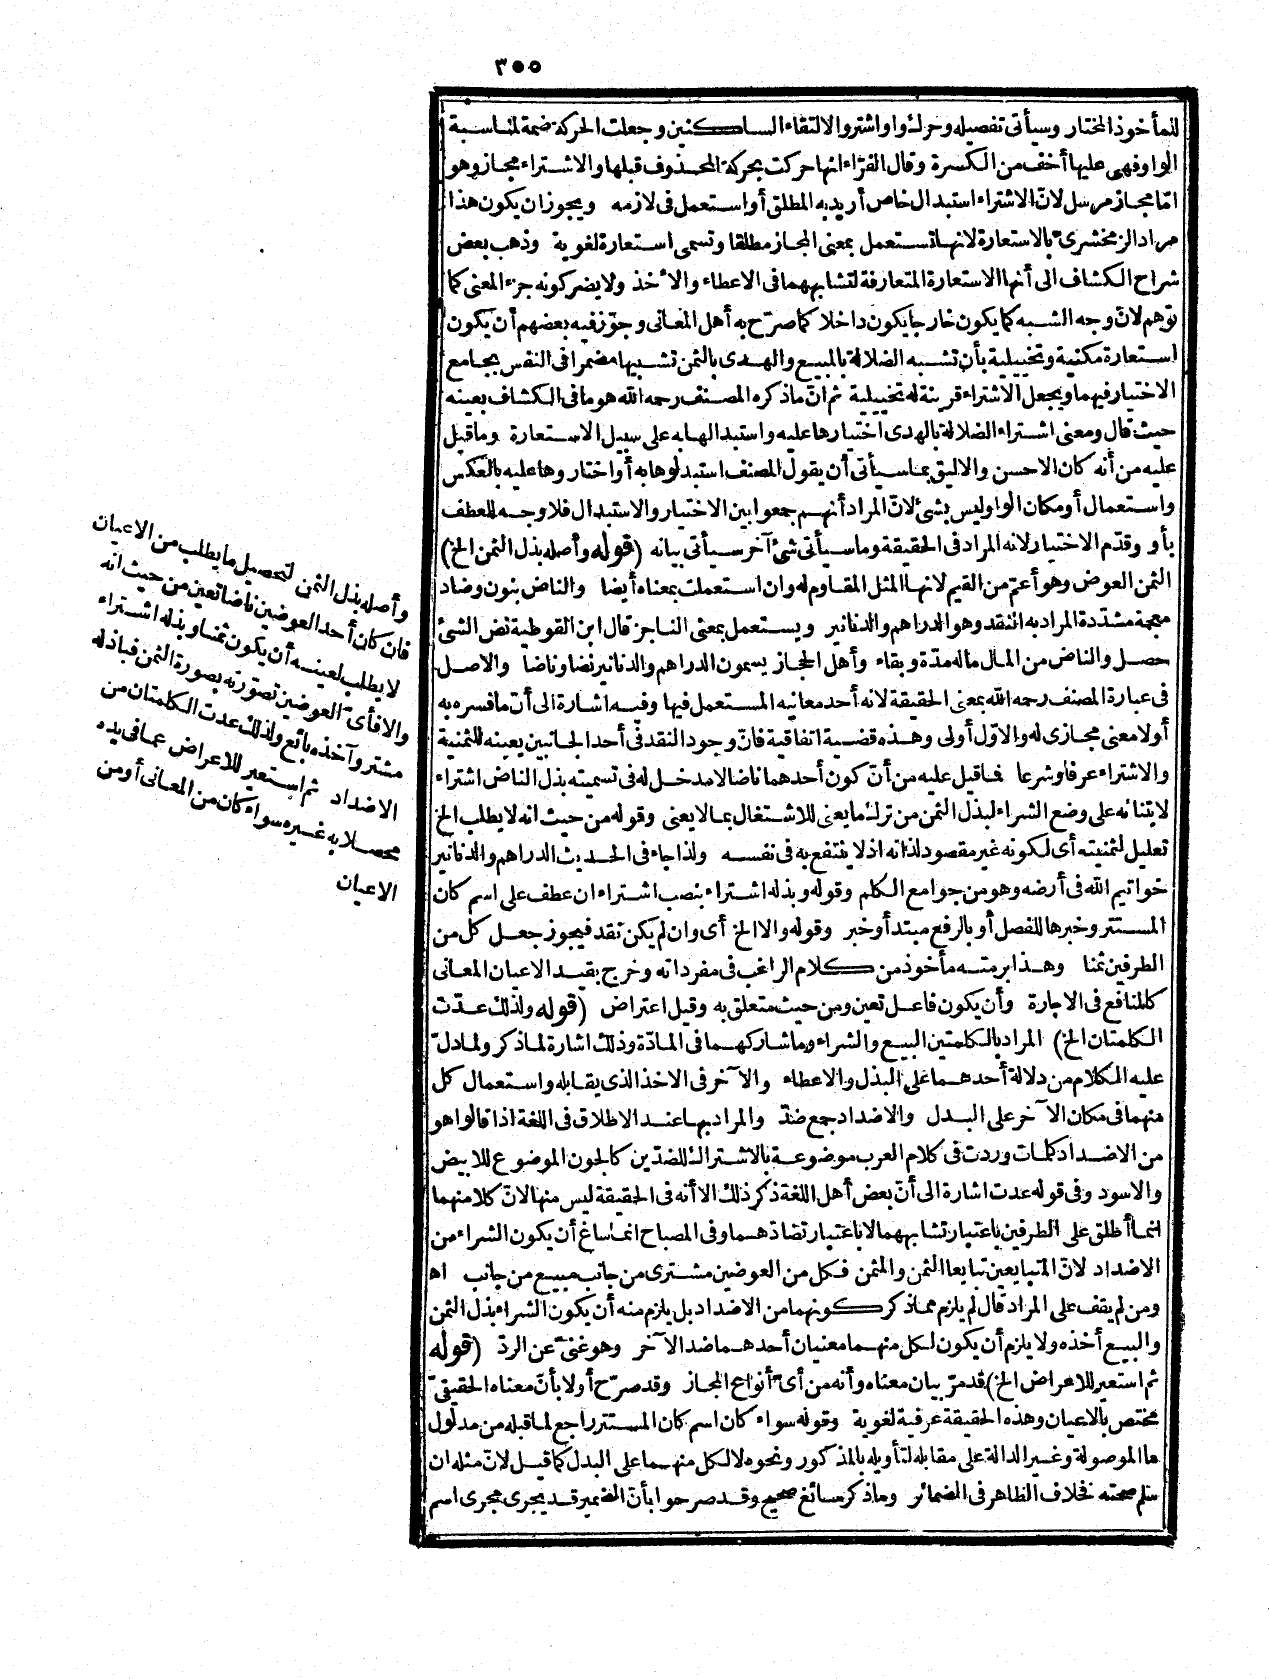 ٣٥٥
للمأخوذ المختار وسيأتى تفصيله وحركت واو اشتروا لالتقاء الساكنين وجعلت الحركة ضمة لمناسبة
الواو فهى عليها أخف من الكسرة وقال الفرّاء انها حركت بحركة المحذوف قبلها والاشتراء مجاز وهو
امّا مجاز مرسل لانّ الاشتراء استبدال خاص أريد به المطلق أو استعمل فى لازمه ويجوز ان يكون هذا
مراد الزمخشرىّ بالاستعارة لانها تستعمل بمعنى المجاز مطلقا وتسمى استعارة لغوية وذهب بعض
شراح الكشاف الى أنها الاستعارة المتعارفة لتشابههما فى الاعطاء والأخذ ولا يضر كونه جزء المعنى كما
توّهم لانّ وجه الشبه كما يكون خارجا يكون داخلا كما صرّح به أهل المعانى وجوّز فيه بعضهم أن يكون
استعارة مكنية وتخييلية بأن تشبه الضلالة بالمبيع والهدى بالثمن تشبيها مضمرا فى النفس بجامع
الاختيار فيهما ويجعل الاشتراء قرينة له تخييلية ثم انّ ما ذكره المصنف رحمه الله هو ما فى الكشاف بعينه
حيث قال ومعنى اشتراء الضلالة بالهدى اختيارها عليه واستبدالها به على سبيل الاستعارة وما قيل
عليه من أنه كان الاحسن والاليق بما سيأتى أن يقول المصنف استبدلوها به أو اختاروها عليه بالعكس
واستعمال أو مكان الواو ليس بشئ لانّ المراد أنهم جمعوا بين الاختيار والاستبدال فلا وجه للعطف
بأو وقدّم الاختيار لانه المراد فى الحقيقة وما سيأتى شئ آخر سيأتى بيانه (قوله وأصله بذل الثمن الخ)
الثمن العوض وهو أعمّ من القيم لانها المثل المقاوم له وان استعملت بمعناه أيضا والناض بنون وضاد
معجمة مشدّدة المراد به النقد وهو الدراهم والدنانير ويستعمل بمعنى الناجز قال ابن القوطية نض الشئ
حصل والناض من المال ماله مدّة وبقاء وأهل الحجاز يسمون الدراهم والدنانير نضا وناضا والاصل
فى عبارة المصنف رحمه الله بمعنى الحقيقة لانه أحد معانيه المستعمل فيها وفيه اشارة الى أن ما فسره به
أولا معنى مجازى له والاوّل أولى وهذه قضية اتفاقية فانّ وجود النقد فى أحد الجانبين يعينه للثمنية
والاشتراء عرفا وشرعا فما قيل عليه من أنّ كون أحدهما ناضا لا مدخل له فى تسميته بذل الناض اشتراء
لابتنائه على وضع الشراء لبذل الثمن من ترك ما يعنى للاشتغال بما لا يعنى وقوله من حيث انه لا يطلب الخ
تعليل لثمنيته أى لكونه غير مقصود لذاته اذ لا ينتفع به فى نفسه ولذا جاء فى الحديث الدراهم والدنانير
خواتيم الله فى أرضه وهو من جوامع الكلم وقوله وبذله اشتراء بنصب اشتراء ان عطف على اسم كان
المستتر وخبرها للفصل أو بالرفع مبتدأ وخبر وقوله والا الخ أى وان لم يكن نقد فيجوز جعل كل من
الطرفين ثمنا وهذا برمته مأخوذ من كلام الراغب فى مفرداته وخرج بقيد الاعيان المعانى
كالمنافع فى الاجارة وأن يكون فاعل تعين ومن حيث متعلق به وقيل اعتراض (قوله ولذلك عدّت
الكلمتان الخ) المراد بالكلمتين البيع والشراء وما شاركهما فى المادّة وذلك اشارة لما ذكر ولما دلّ
عليه الكلام من دلالة أحدهما على البذل والاعطاء والآخر فى الاخذ الذى يقابله واستعمال كل
منهما فى مكان الآخر على البدل والاضداد جمع ضدّ والمراد بها عند الاطلاق فى اللغة اذا قالوا هو
من الاضداد كلمات وردت فى كلام العرب موضوعة بالاشتراك للضدّين كالجون الموضوع للابيض
والاسود وفى قوله عدت اشارة الى أنّ بعض أهل اللغة ذكر ذلك الا أنه فى الحقيقة ليس منها لانّ كلا منهما
انما أطلق على الطرفين باعتبار تشابههما لا باعتبار تضادّهما وفى المصباح انما ساغ أن يكون الشراء من
الاضداد لانّ المتبايعين تبايعا الثمن والمثمن فكل من العوضين مشترى من جانب مبيع من جانب اه
ومن لم يقف على المراد قال لم يلزم مما ذكر كونهما من الاضداد بل يلزم منه أن يكون الشراء بذل الثمن
والبيع أخذه ولا يلزم أن يكون لكل منهما معنيان أحدهما ضد الآخر وهو غنىّ عن الردّ (قوله
ثم استعير للاعراض الخ) قد مرّ بيان معناه وأنه من أىّ أنواع المجاز وقد صرّح أولا بأنّ معناه الحقيقىّ
مختص بالاعيان وهذه الحقيقة عرفية لغوية وقوله سواء كان اسم كان المستتر راجع لما قبله من مدلول
ما الموصولة وغير الدالة على مقابله لتأويله بالمذكور ونحوه لا لكل منهما على البدل كما قيل لانّ مثله ان
سلم صحته فخلاف الظاهر فى الضمائر وما ذكر سائغ صحيح وقد صرحوا بأنّ الضمير قد يجرى مجرى اسم
وأصله بذل الثمن لتحصيل ما يطلب من الاعيان
فان كان أحد العوضين ناضا تعين من حيث انه
لا يطلب لعينه أن يكون ثمنا وبذله اشتراء
والا فأىّ العوضين تصوّرته بصورة الثمن فباذله
مشتر وآخذه بائع ولذلك عدت الكلمتان من
الاضداد ثم استعير للاعراض عما فى يده
محصلا به غيره سواء كان من المعانى أو من
الاعيان